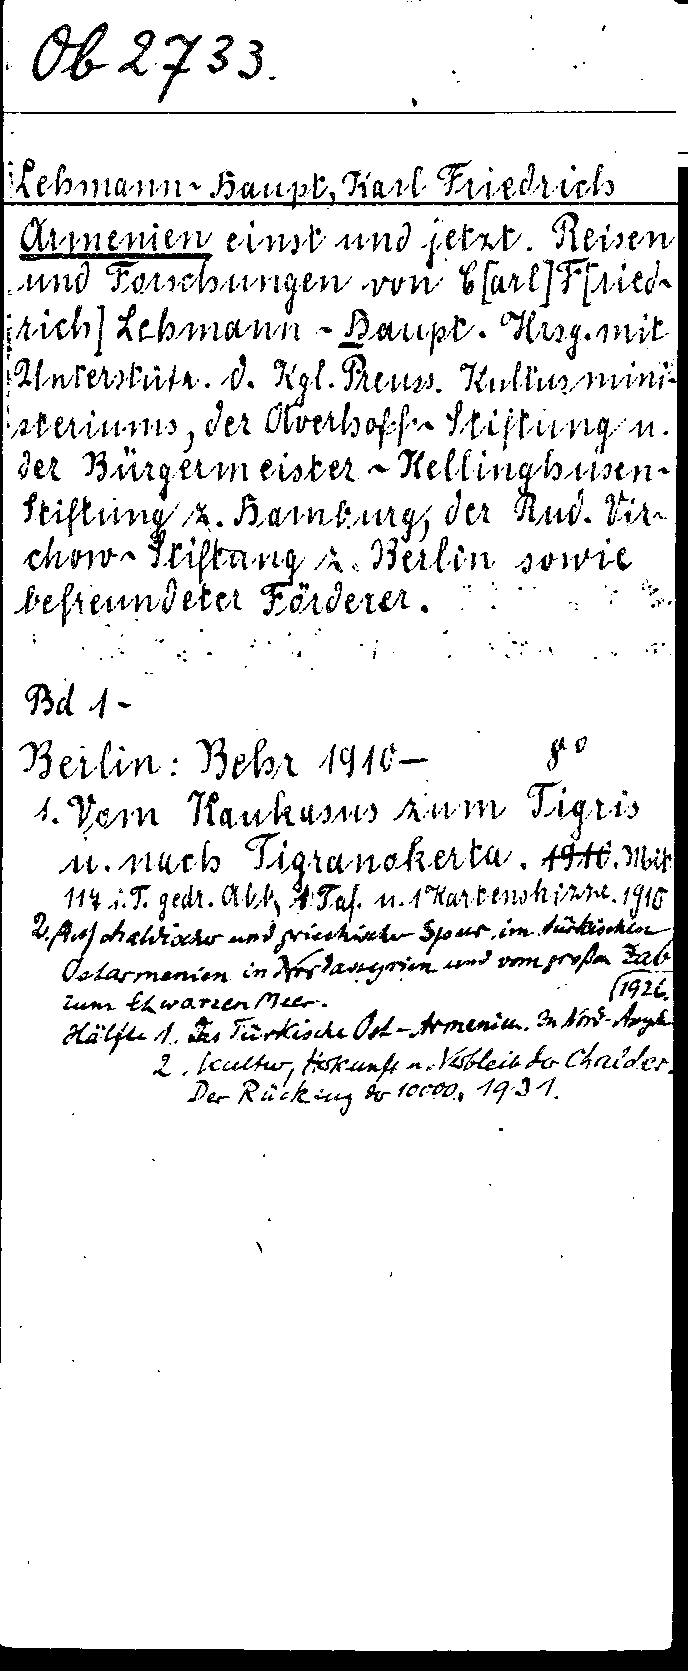 Ob 2733.
Lehmann-Haupt, Karl Friedrich
Armenien einst und jetzt. Reisen
und Forschungen von C[arl] F[ried-
rich] Lehmann-Haupt. Hrsg. mit
Unterstütz. d. Kgl. Preuss. Kultusmini-
steriums, der Averhoff-Stiftung u.
der Bürgermeister-Kellinghusen-
Stiftung z. Hamburg, der Rud. Vir-
chow-Stiftung z. Berlin sowie
befreundeter Förderer.
Bd 1-
Berlin: Behr 1910— 8°
1. Vom Kaukasus zum Tigris
u. nach Tigranokerta. 1910. Mit
117 i. T. gedr. Abb, 1 Taf. u. 1 Kartenskizze. 1910
2. Auf chaldischer und griechischer Spur im türkischen
Ostarmenien in Nordassyrien und vom großen Zab
zum Schwarzen Meer. 1926.
Hälfte 1. Das Türkische Ost-Armenien. In Nord-Assyr
2. Kultur, Herkunft u. Verbleib der Chalder.
Der Rückzug der 10000. 1931.